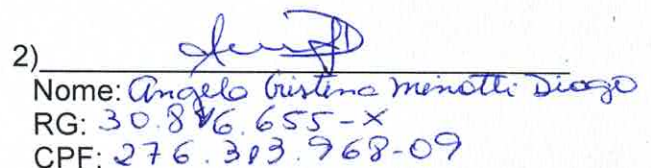 2)
Nome: Angela Cristina Minotti Diogo
RG: 30.846.655-X
CPF: 276.313.968-09